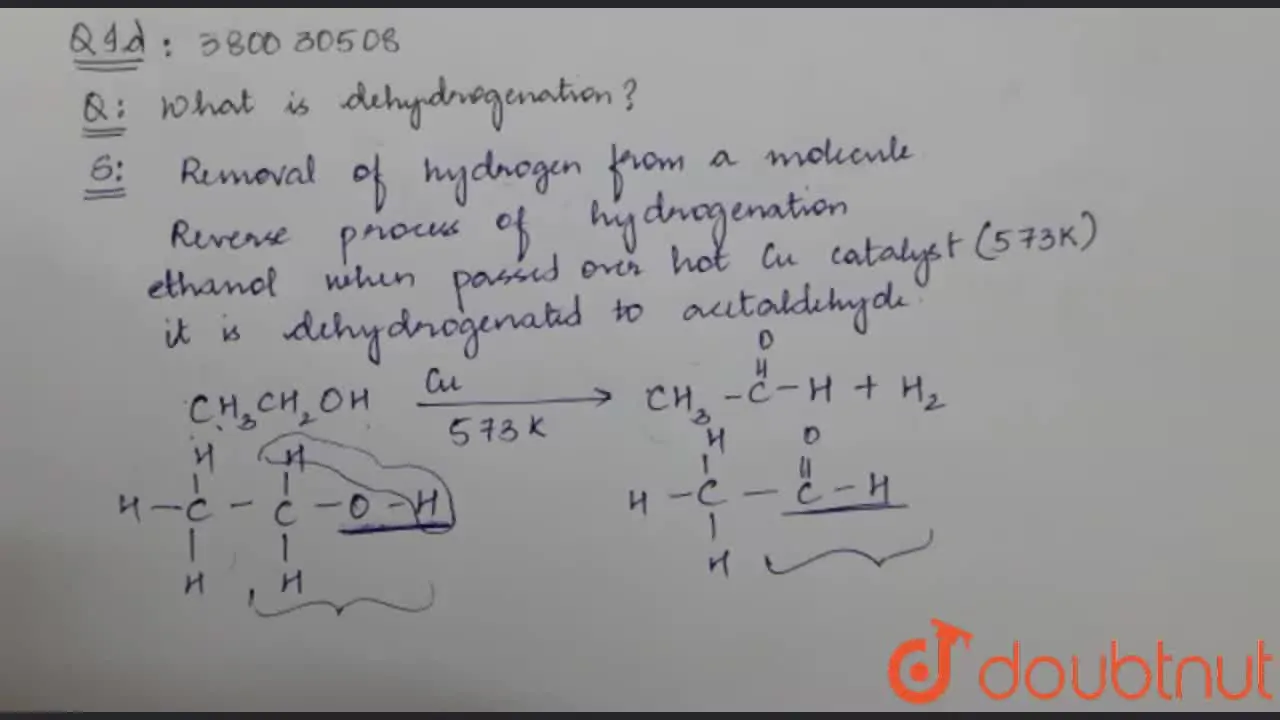 QId: 380030508
Q: What is dehydrogenation?
S: Removal of hydrogen from a molecule
Reverse process of hydrogenation
ethanol when passed over hot Cu catalyst (573K)
it is dehydrogenated to acetaldehyde.
O
CH₃CH₂OH Cu 573K → CH₃ - C - H + H₂
H H H O
H - C - C - O - H H - C - C - H
H H H
doubtnut